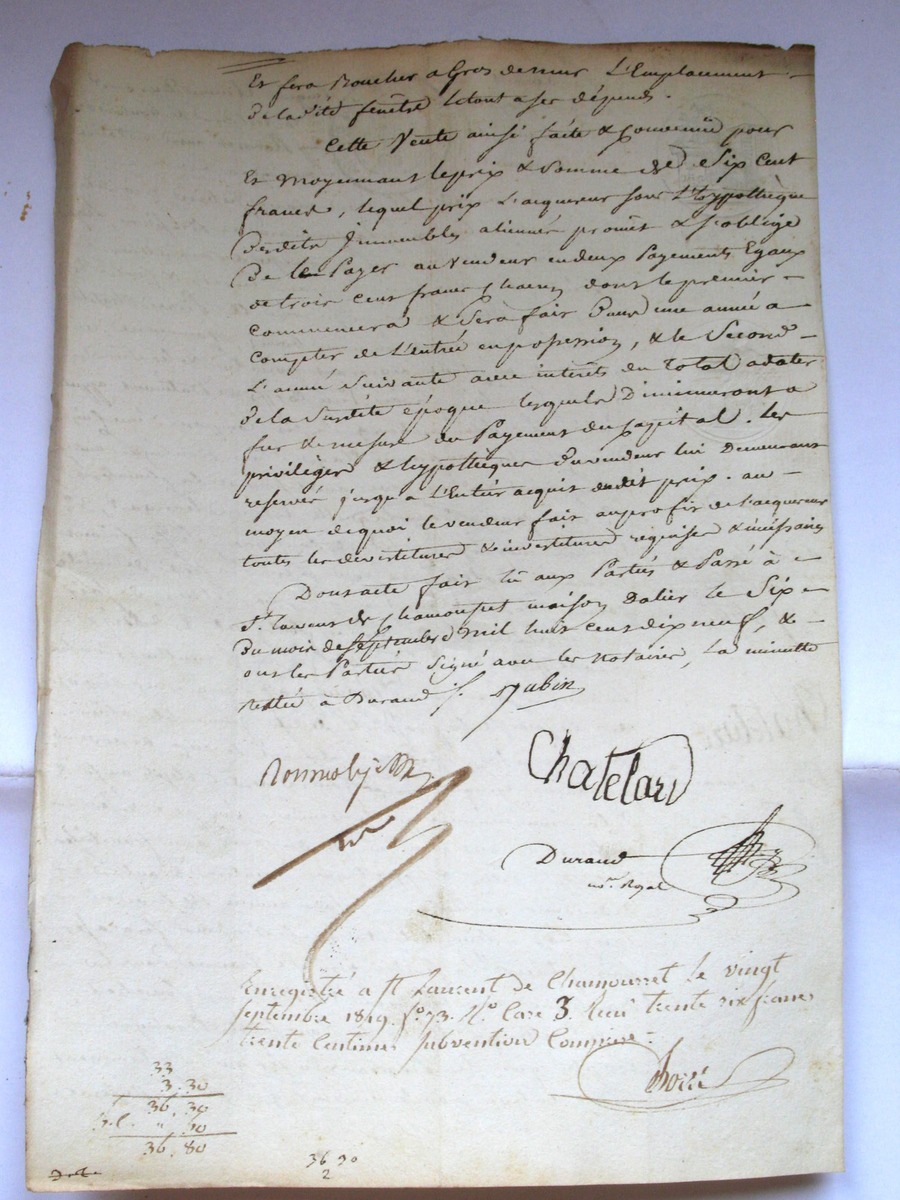 Et fera Boucher a Gros de mur L'Emplacement
de ladite fenêtre letout a ses dépends.
Cette Vente ainsi faite & convenue pour
Et Moyennant leprix & Somme de Six Cent
francs, lequel prix L'acquereur sous L'hypothèque
desdits Immeubles aliennés promet & s'oblige
De le Payer au Vendeur en deux Payements Egaux
de trois cent francs chacun dont le premier
commencera & Sera fait Dans une année a
compter de L'entrée en possession, & le Second
L'année Suivante avec intérêts du Total a dater
de la Susdite époque lesquels Diminueront a
fur & mesure du Payement du Capital. Les
privilèges & hypothèques du vendeur lui Demeurant
reservés jusqu'a L'Entier acquit dudit prix. au
moyen de quoi le vendeur fait au profit de L'acquereur
toutes les devestitures & investitures requises & nécessaires
Dont acte fait lu aux Parties & Passé à
St. Laurent de Chamousset maison Dalier le Six
Du mois de Septembre Mil huit cent dix neuf, &
ont les Parties Signé avec les Notaires, La minutte
Restée à Durand
Chatelard
Durand
nore. Royal
Enregistré a St Laurent de Chamousset Le vingt
septembre 1819. fo. 73. Ro. Case 3. Reçu trente six francs
trente Centimes subvention Comprise.
33
3.30
36,30
,, 50
36,80
36 30
2